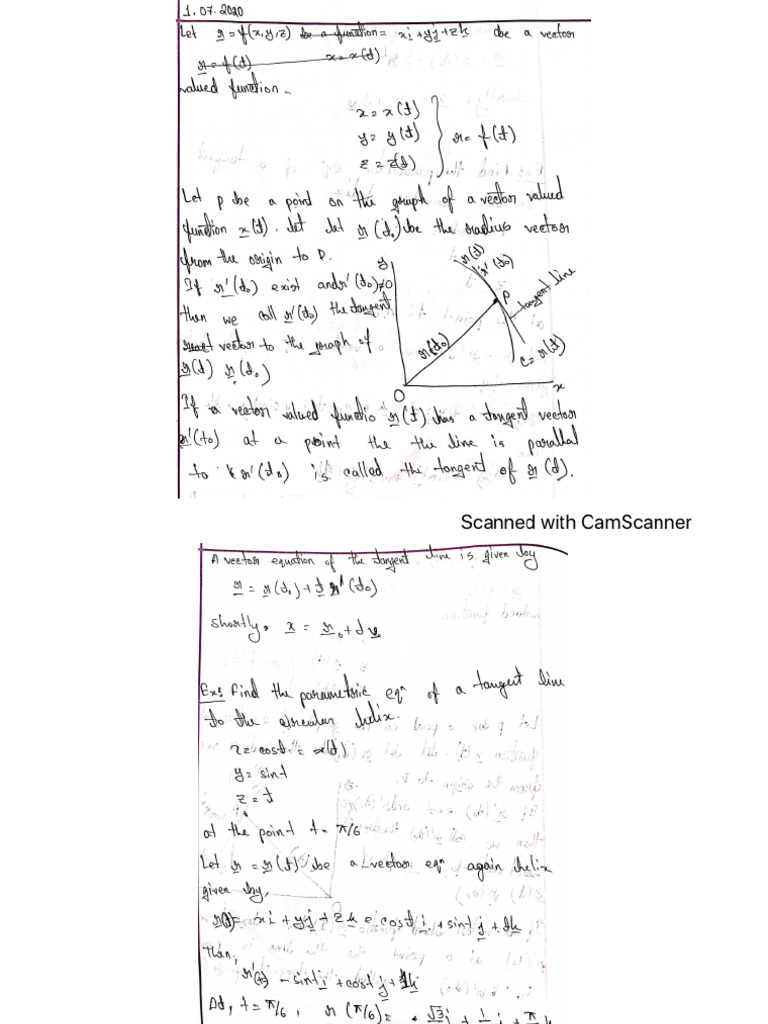 1.07.2020
Let r = f(x,y,z) be a function = xi + yj + zk be a vector
r = f(t) x = x(t)
valued function.
x = x(t)
y = y(t) } r = f(t)
z = z(t)
Let p be a point on the graph of a vector valued
function r(t). Let let r(t₀) be the radius vector
from the origin to P.
If r'(t₀) exist and r'(t₀)≠0
then we call r'(t₀) the tangent
vector to the graph of
r(t) r(t₀)
y
r(t)
r'(t₀)
P
tangent line
r(t₀)
c = r(t)
O
x
If a vector valued functio r(t) has a tangent vector
r'(t₀) at a point the the line is parallal
to k r'(t₀) is called the tangent of r(t).
Scanned with CamScanner
A vector equation of the tangent line is given by
r = r(t₀) + t r'(t₀)
shortly, r = r₀ + t v
Ex: Find the parametric eqⁿ of a tangent line
to the circular helix.
x = cost = x(t)
y = sint
z = t
at the point t = π/6
Let r = r(t) be a vector eqⁿ again helix
given by,
r(t) = xi + yj + zk = cost i + sint j + tk
Then,
r'(t) - sint i + cost j + 1k
At, t = π/6, r(π/6) = √3 i + 1 j + π k